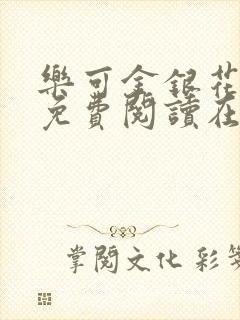 樂可金銀花
免費閱讀在
掌閱文化 彩筆